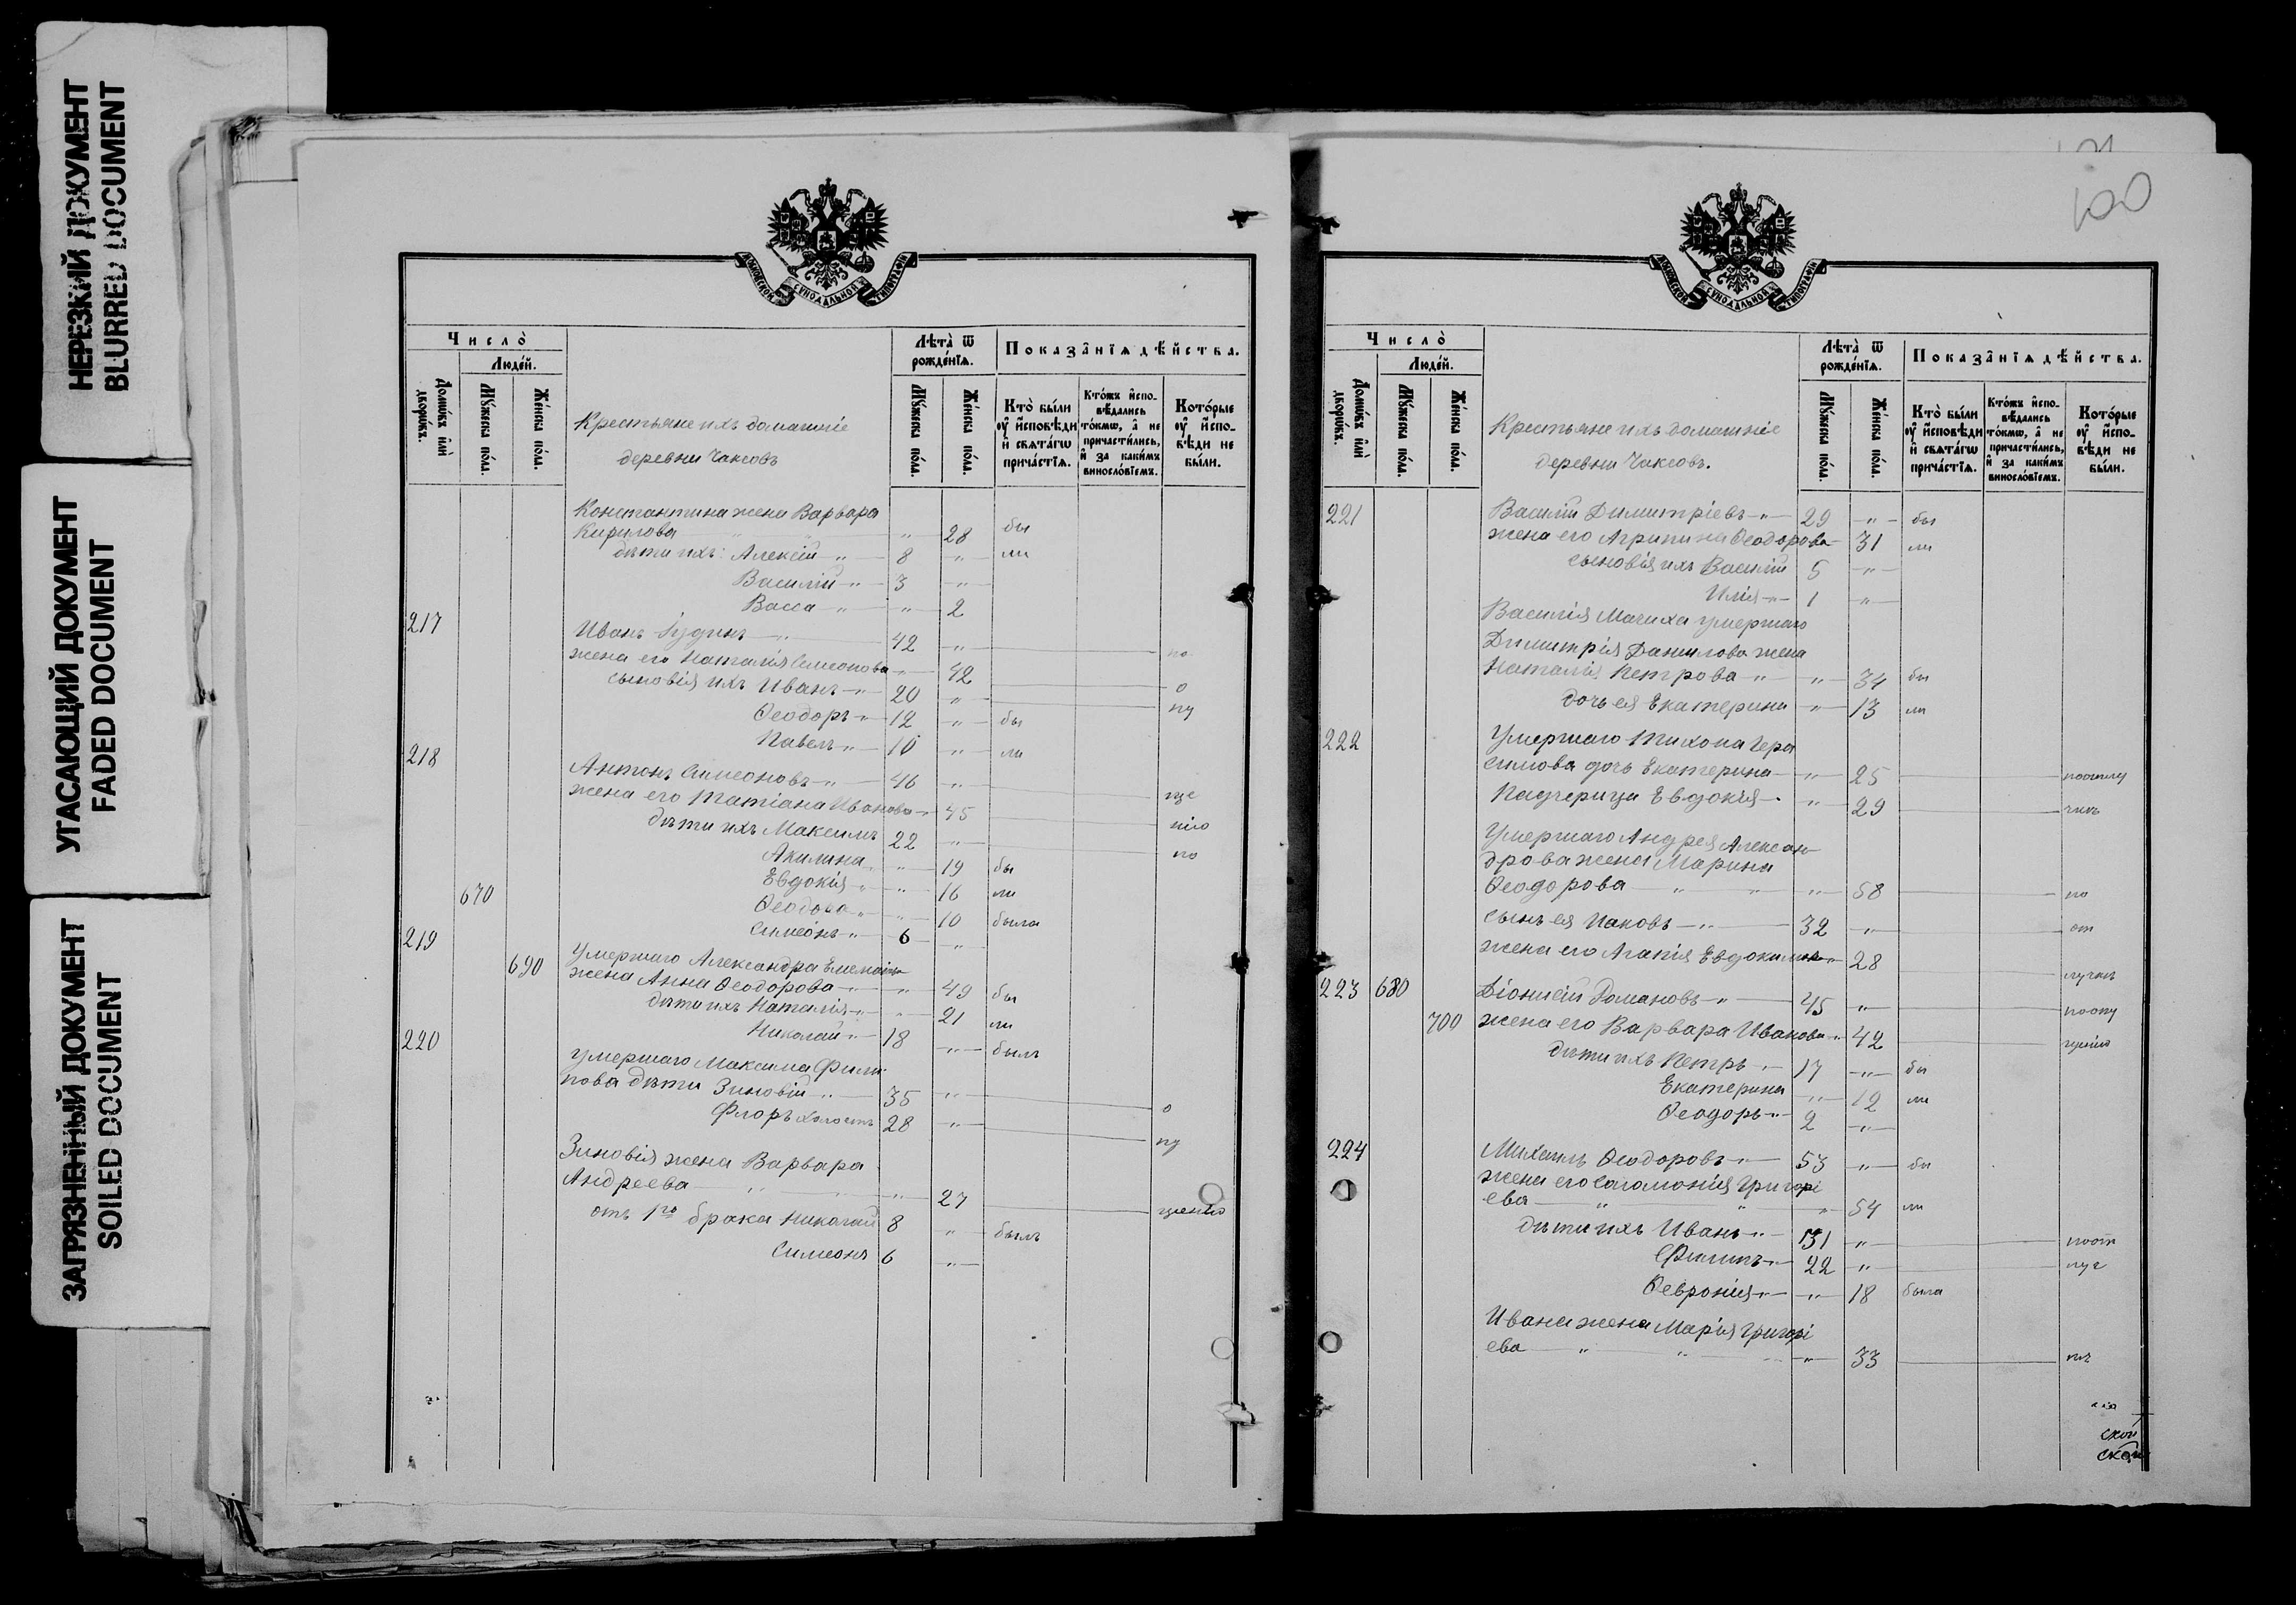 НЕРЕЗКИЙ ДОКУМЕНТ
BLURRED DOCUMENT
УГАСАЮЩИЙ ДОКУМЕНТ
FADED DOCUMENT
ЗАГРЯЗНЕННЫЙ ДОКУМЕНТ
SOILED DOCUMENT
МОСКОВСКОЙ СѴНОДАЛЬНОЙ ТИПОГРАФІИ
Число̀
Людéй.
Домѡ́въ и҆лѝ дворѡ́въ.
Мꙋ́жеска по́ла.
Же́нска по́ла.
Крестьяне ихъ домашніе
деревни Чаксовъ
Лѣ́та ѿ рождéнїѧ.
Мꙋ́жеска по́ла.
Же́нска по́ла.
Показа̂нїѧ дѣ́йства.
Кто̀ бы́ли ᲂу҆ и҆сповѣди и҆ свѧта́гѡ причáстїѧ.
Кто́жъ и҆сповѣ́дались то́кмѡ, а҆ не причасти́лись, и҆ за каки́мъ винословїемъ.
Кото́рые ᲂу҆ и҆сповѣди не бы́ли.
Константина жена Варвара
Кирилова " 28 бы
дѣти ихъ: Алексій " 8 " ли
Василій " 3 "
Васса " " 2
217 Иванъ Іудинъ " 42 " по
жена его Наталія Симеонова " 42 о
сыновія ихъ Иванъ " 20 " пу
Ѳеодоръ " 12 " бы
Павелъ " 10 " ли
218 Антонъ Симеоновъ " 46 " ще
жена его Татіана Иванова " 45 нію
дѣти ихъ Максимъ 22 " по
Акилина " " 19 бы
Евдокія " " 16 ли
670 " 10 была
Симеонъ " 6 "
219
690 Умершаго Александра
жена Анна Ѳеодорова " " 49 бы
дѣти ихъ Наталія " " 21 ли
Николай " 18 " былъ
220 Умершаго Максима Фили
пова дѣти Зиновій " 35 " о
Флоръ холостъ 28 " пу
Зиновія жена Варвара
Андреева " " " 27 щенію
отъ 1го брака Николай 8 " былъ
Симеонъ 6 "
100
МОСКОВСКОЙ СѴНОДАЛЬНОЙ ТИПОГРАФІИ
Число̀
Людéй.
Домѡ́въ и҆лѝ дворѡ́въ.
Мꙋ́жеска по́ла.
Же́нска по́ла.
Крестьяне ихъ домашніе
деревни Чаксовъ.
Лѣ́та ѿ рождéнїѧ.
Мꙋ́жеска по́ла.
Же́нска по́ла.
Показа̂нїѧ дѣ́йства.
Кто̀ бы́ли ᲂу҆ и҆сповѣди и҆ свѧта́гѡ причáстїѧ.
Кто́жъ и҆сповѣ́дались то́кмѡ, а҆ не причасти́лись, и҆ за каки́мъ винословїемъ.
Кото́рые ᲂу҆ и҆сповѣди не бы́ли.
221 Василій Димитріевъ " 29 " бы
жена его Агрипина Ѳеодорова 31 ли
сыновія ихъ Василій 5 "
Илія " 1 "
Василія Мачиха умершаго
Димитрія Данилова жена
Наталія Петрова " " 34 бы
дочь ея Екатерина " 13 ли
222 Умершаго Тихона Гера
симова дочь Екатерина " 25
Падчерица Евдокія " 29
Умершаго Андрея Алексан
дрова жена Марина
Ѳеодорова " " " 58 по
сынъ ея Иаковъ " 32 " от
жена его Агапія " 28
223 680 Діонисій Романовъ " 45 "
700 жена его Варвара Иванова " 42 щенію
дѣти ихъ Петръ " 17 " бы
Екатерина " 12 ли
Ѳеодоръ " 2 "
224 Михаилъ Ѳеодоровъ " 53 " бы
жена его Саломонія Григорі
ева " " " 54 ли
дѣти ихъ Иванъ " 31 "
Филипъ " 22 "
Ѳевронія " " 18 была
Ивана жена Марія Григорі
ева " " " 33
ской